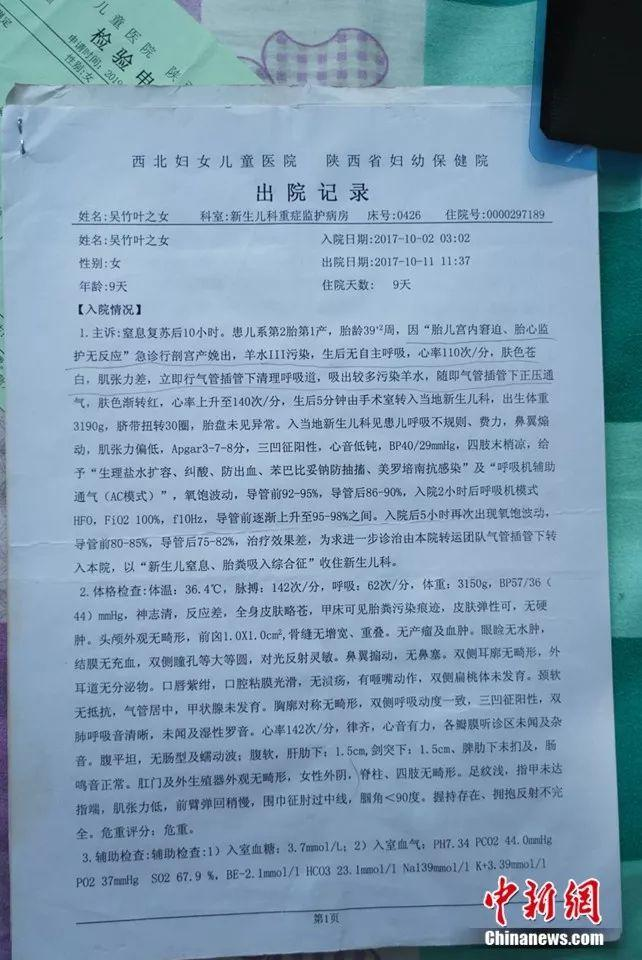 儿童医院 陕
检验申
申请时间:2019
性别:女
西北妇女儿童医院 陕西省妇幼保健院
出院记录
姓名:吴竹叶之女 科室:新生儿科重症监护病房 床号:0426 住院号:0000297189
姓名:吴竹叶之女 入院日期:2017-10-02 03:02
性别:女 出院日期:2017-10-11 11:37
年龄:9天 住院天数: 9天
【入院情况】
1.主诉:窒息复苏后10小时。患儿系第2胎第1产，胎龄39⁺²周，因“胎儿宫内窘迫、胎心监
护无反应”急诊行剖宫产娩出，羊水III污染，生后无自主呼吸，心率110次/分，肤色苍
白，肌张力差，立即行气管插管下清理呼吸道，吸出较多污染羊水，随即气管插管下正压通
气，肤色渐转红，心率上升至140次/分，生后5分钟由手术室转入当地新生儿科，出生体重
3190g，脐带扭转30圈，胎盘未见异常。入当地新生儿科见患儿呼吸不规则、费力，鼻翼煽
动，肌张力偏低，Apgar3-7-8分，三凹征阳性，心音低钝，BP40/29mmHg，四肢末梢凉，给
予“生理盐水扩容、纠酸、防出血、苯巴比妥钠防抽搐、美罗培南抗感染”及“呼吸机辅助
通气（AC模式）”，氧饱波动，导管前92-95%，导管后86-90%，入院2小时后呼吸机模式
HFO，FiO2 100%，f10Hz，导管前逐渐上升至95-98%之间。入院后5小时再次出现氧饱波动，
导管前80-85%，导管后75-82%，治疗效果差，为求进一步诊治由本院转运团队气管插管下转
入本院，以“新生儿窒息、胎粪吸入综合征”收住新生儿科。
2.体格检查:体温：36.4℃，脉搏：142次/分，呼吸：62次/分，体重：3150g，BP57/36（
44）mmHg，神志清，反应差，全身皮肤略苍，甲床可见胎粪污染痕迹，皮肤弹性可，无硬
肿。头颅外观无畸形，前囟1.0X1.0cm²,骨缝无增宽、重叠。无产瘤及血肿。眼睑无水肿，
结膜无充血，双侧瞳孔等大等圆，对光反射灵敏。鼻翼搧动，无鼻塞。双侧耳廓无畸形，外
耳道无分泌物。口唇紫绀，口腔粘膜光滑，无溃疡，有咂嘴动作，双侧扁桃体未发育。颈软
无抵抗，气管居中，甲状腺未发育。胸廓对称无畸形，双侧呼吸动度一致，三凹征阳性，双
肺呼吸音清晰，未闻及湿性罗音。心率142次/分，律齐，心音有力，各瓣膜听诊区未闻及杂
音。腹平坦，无肠型及蠕动波；腹软，肝肋下：1.5cm,剑突下：1.5cm、脾肋下未扪及，肠
鸣音正常。肛门及外生殖器外观无畸形，女性外阴，脊柱、四肢无畸形。足纹浅，指甲未达
指端，肌张力低，前臂弹回稍慢，围巾征肘过中线，腘角＜90度。握持存在、拥抱反射不完
全。危重评分：危重。
3.辅助检查:辅助检查:1）入室血糖：3.7mmol/L；2）入室血气：PH7.34 PCO2 44.0mmHg
PO2 37mmHg SO2 67.9 %，BE-2.1mmol/l HCO3 23.1mmol/l Na139mmol/l K+3.39mmol/l
第1页
中新网
Chinanews.com